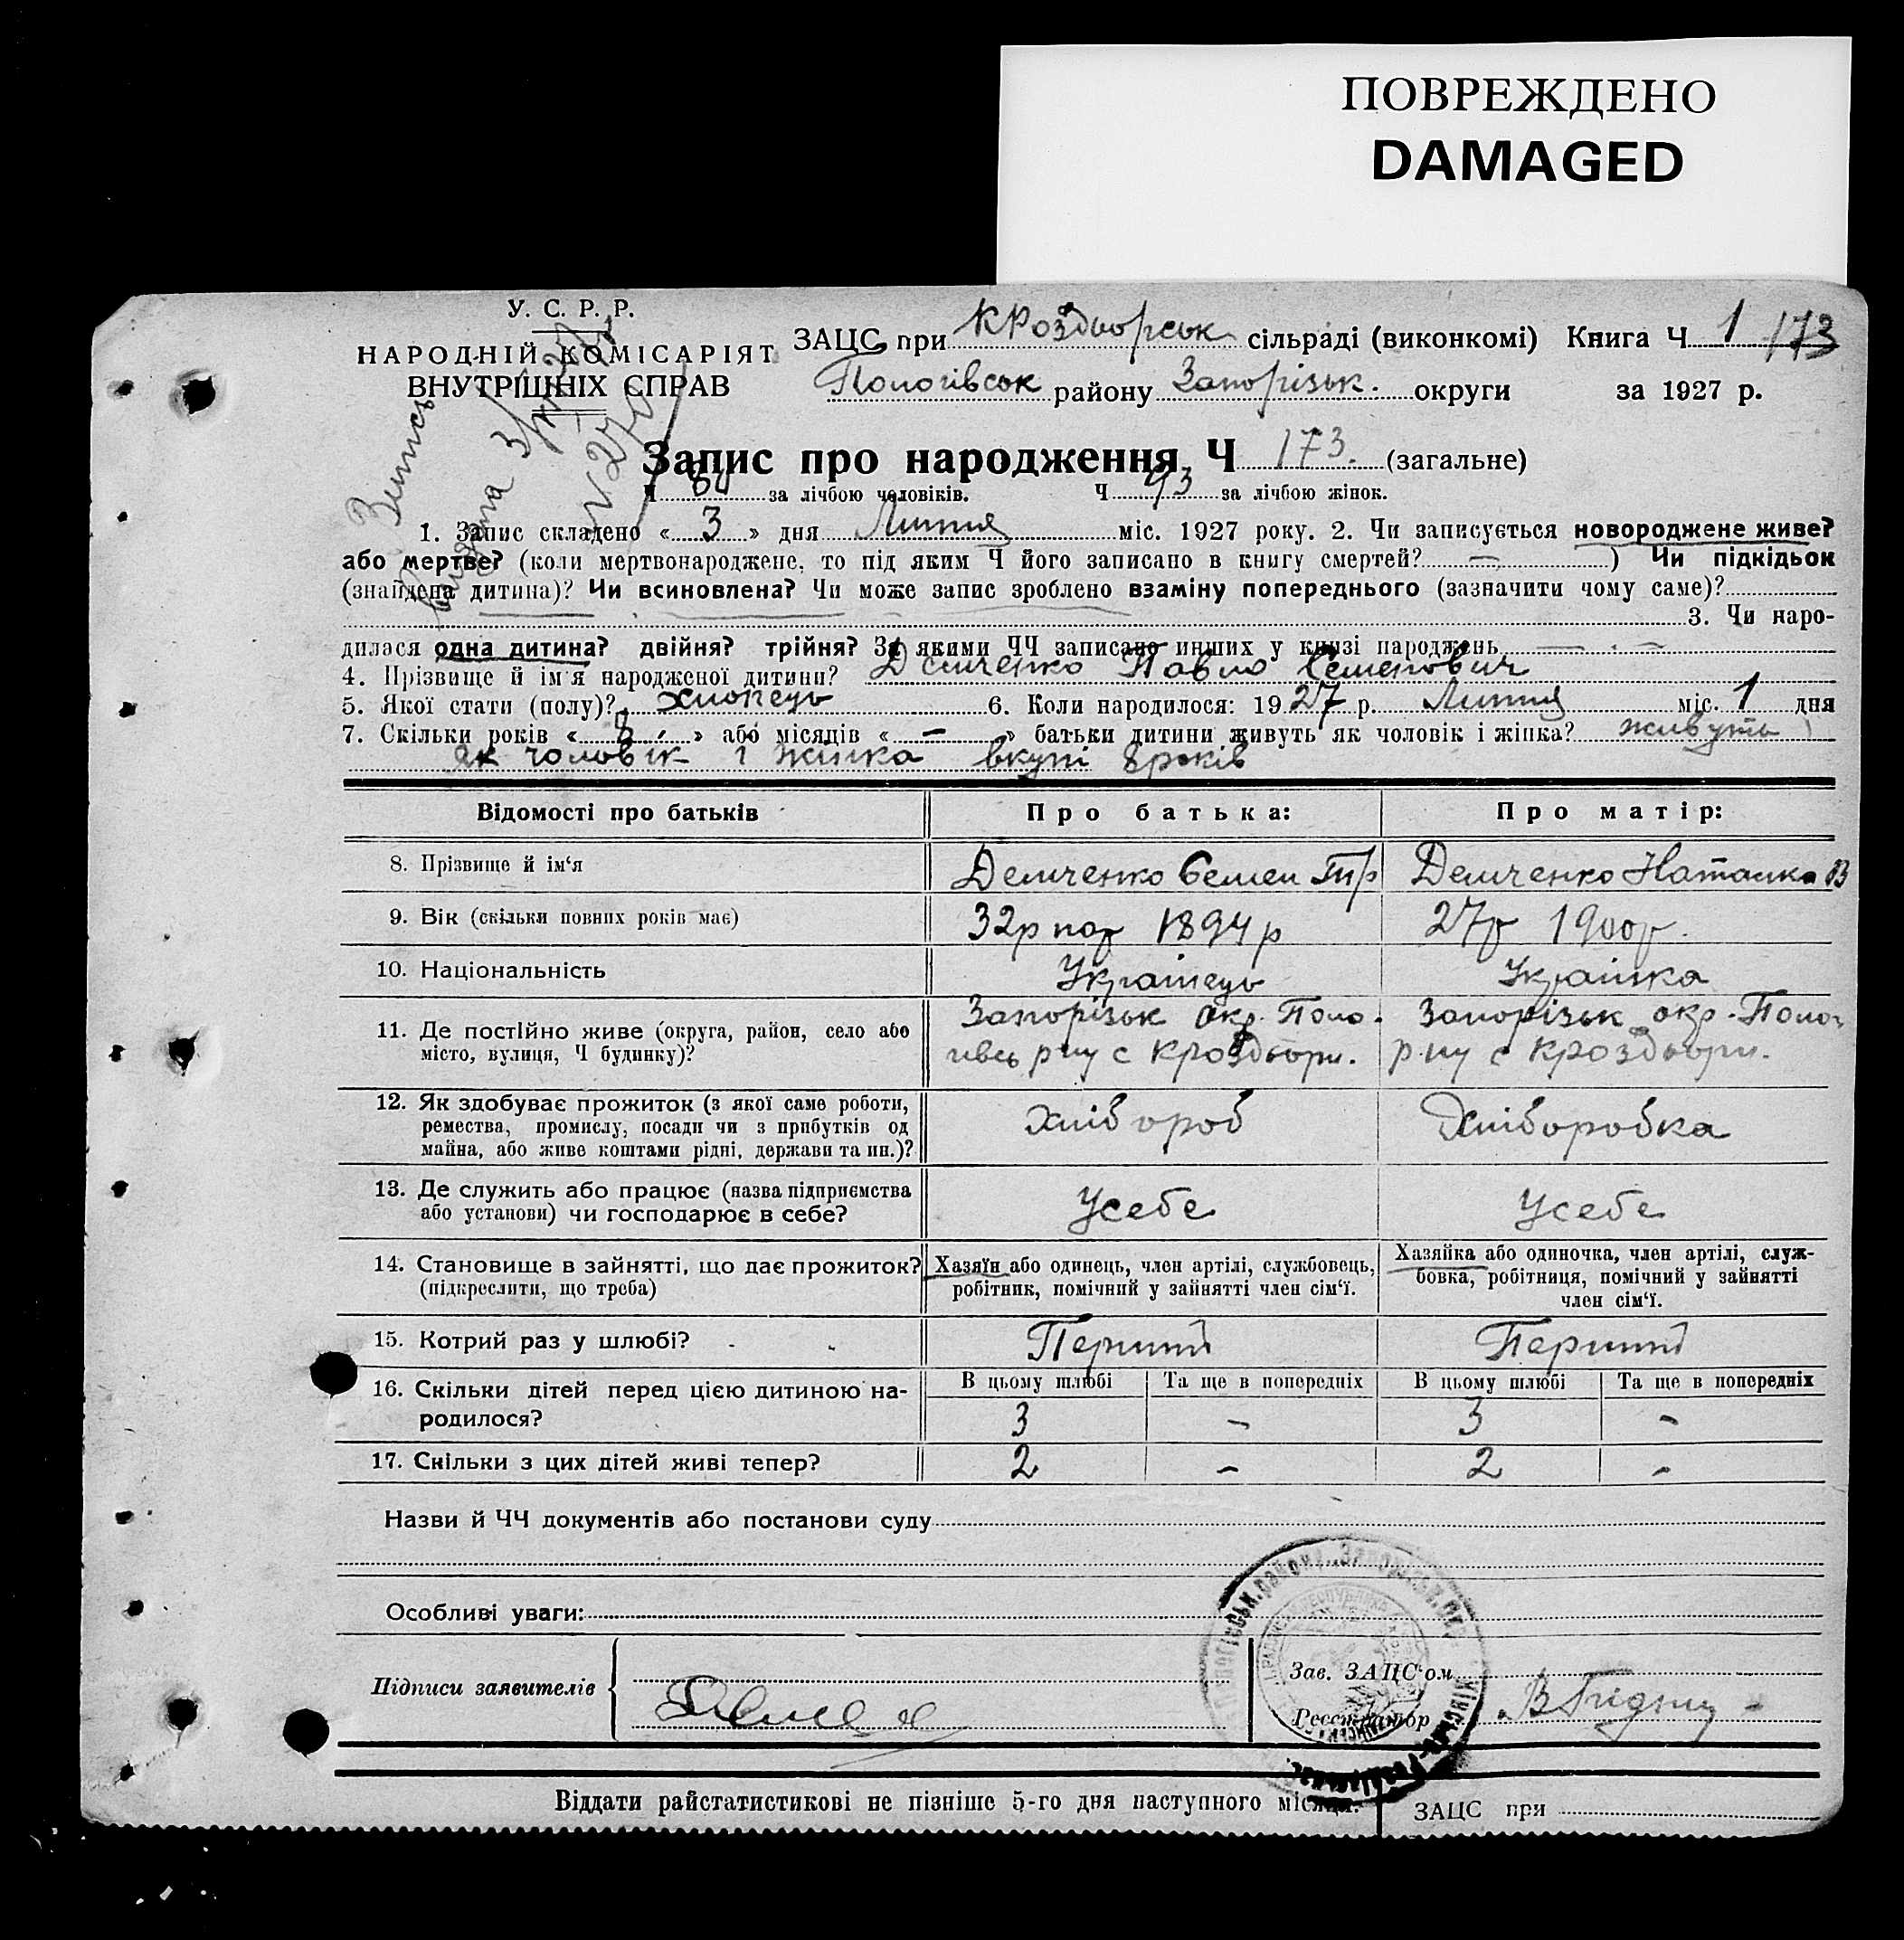 ПОВРЕЖДЕНО
DAMAGED
У. С. Р. Р.
НАРОДНІЙ КОМІСАРІЯТ
ВНУТРІШНІХ СПРАВ
ЗАЦС при КРоздворськ сільраді (виконкомі) Книга Ч 1 173
Пологівськ району Запорізьк. округи за 1927 р.
Запис про народження Ч 173. (загальне)
Ч 80 за лічбою чоловіків. Ч 93 за лічбою жінок.
1. Запис складено « 3 » дня Липня міс. 1927 року. 2. Чи записується новороджене живе?
або мертве? (коли мертвонароджене, то під яким Ч його записано в книгу смертей? — ) Чи підкідьок
(знайдена дитина)? Чи всиновлена? Чи може запис зроблено взаміну попереднього (зазначити чому саме)?
3. Чи наро-
дилася одна дитина? двійня? трійня? За якими ЧЧ записано инших у книзі народжень — . —
4. Прізвище й ім'я народженої дитини? Демченко Павло Семенович
5. Якої стати (полу)? хлопець 6. Коли народилося: 1927 р. Липня міс. 1 дня
7. Скільки років « 8 » або місяців « – » батьки дитини живуть як чоловік і жінка? живуть
як чоловік і жінка вкупі 8 років
Відомості про батьків Про батька: Про матір:
8. Прізвище й ім‘я Демченко Семен Гр Демченко Наталка В
9. Вік (скільки повних років має) 32р нар 1894 р 27р 1900р.
10. Національність Українець Українка
11. Де постійно живе (округа, район, село або місто, вулиця, Ч будинку)? Запорізьк окр. Поло- Запорізьк окр. Полог
гівсь р ну с Кроздвори. р ну с Кроздвори.
12. Як здобуває прожиток (з якої саме роботи,
ремества, промислу, посади чи з прибутків од
майна, або живе коштами рідні, держави та ин.)? Хлібороб Хліборобка
13. Де служить або працює (назва підприємства
або установи) чи господарює в себе? Усебе Усебе
14. Становище в зайнятті, що дає прожиток?
(підкреслити, що треба)
Хазяїн або одинець, член артілі, службовець,
робітник, помічний у зайнятті член сім‘ї.
Хазяйка або одиночка, член артілі, служ-
бовка, робітниця, помічний у зайнятті
член сім‘ї.
15. Котрий раз у шлюбі? Перший Перший
16. Скільки дітей перед цією дитиною на-
родилося?
В цьому шлюбі Та ще в попередніх В цьому шлюбі Та ще в попередніх
3 – 3 –
17. Скільки з цих дітей живі тепер? 2 – 2 –
Назви й ЧЧ документів або постанови суду
Особливі уваги:
Підписи заявителів
Зав. ЗАЦС‘ом
Реєстратор
Віддати райстатистикові не пізніше 5-го дня наступного місяця.
ЗАЦС при